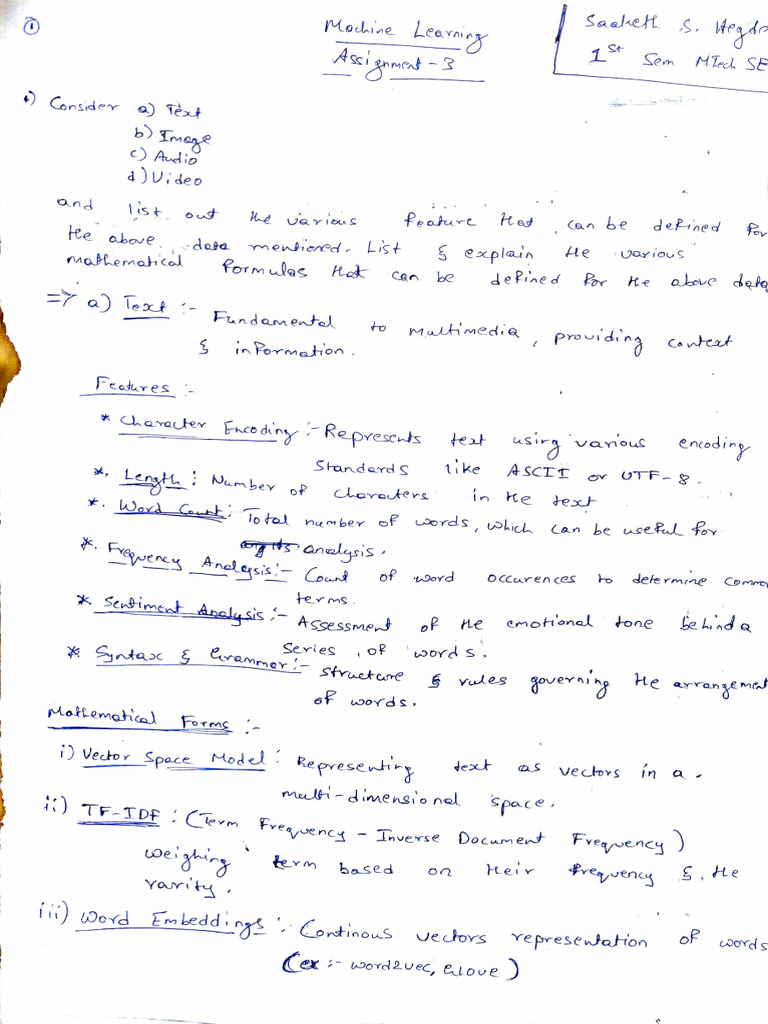 1
Machine Learning
Assignment - 3
Saaketh S. Hegde
1st Sem MTech SE
1) Consider a) Text
b) Image
c) Audio
d) Video
and list out the various feature that can be defined for
the above data mentioned. List & explain the various
mathematical formulas that can be defined for the above data
=> a) Text :- Fundamental to multimedia, providing context
& information.
Features :-
* Character Encoding :- Represents text using various encoding
standards like ASCII or UTF-8.
*. Length : Number of characters in the text
*. Word Count : Total number of words, which can be useful for
analysis.
*. Frequency Analysis :- Count of word occurences to determine common
terms.
* Sentiment Analysis :- Assessment of the emotional tone behind a
series of words.
* Syntax & Grammer :- structure & rules governing the arrangement
of words.
Mathematical Forms :-
i) Vector Space Model : Representing text as vectors in a
multi-dimensional space.
ii) TF-IDF : (Term Frequency - Inverse Document Frequency)
Weighing term based on their frequency & the
rarity.
iii) Word Embeddings :- Continous vectors representation of words
(ex :- word2vec, Glove)